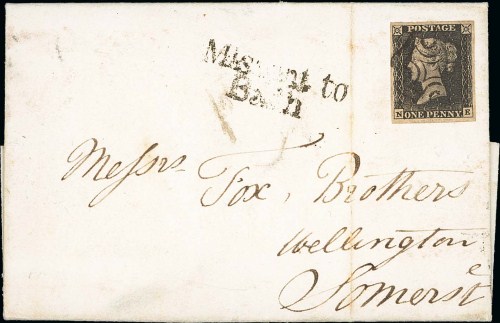 POSTAGE
N ONE PENNY E
Missent to
Bath
Messrs Fox, Brothers
Wellington
Somerset